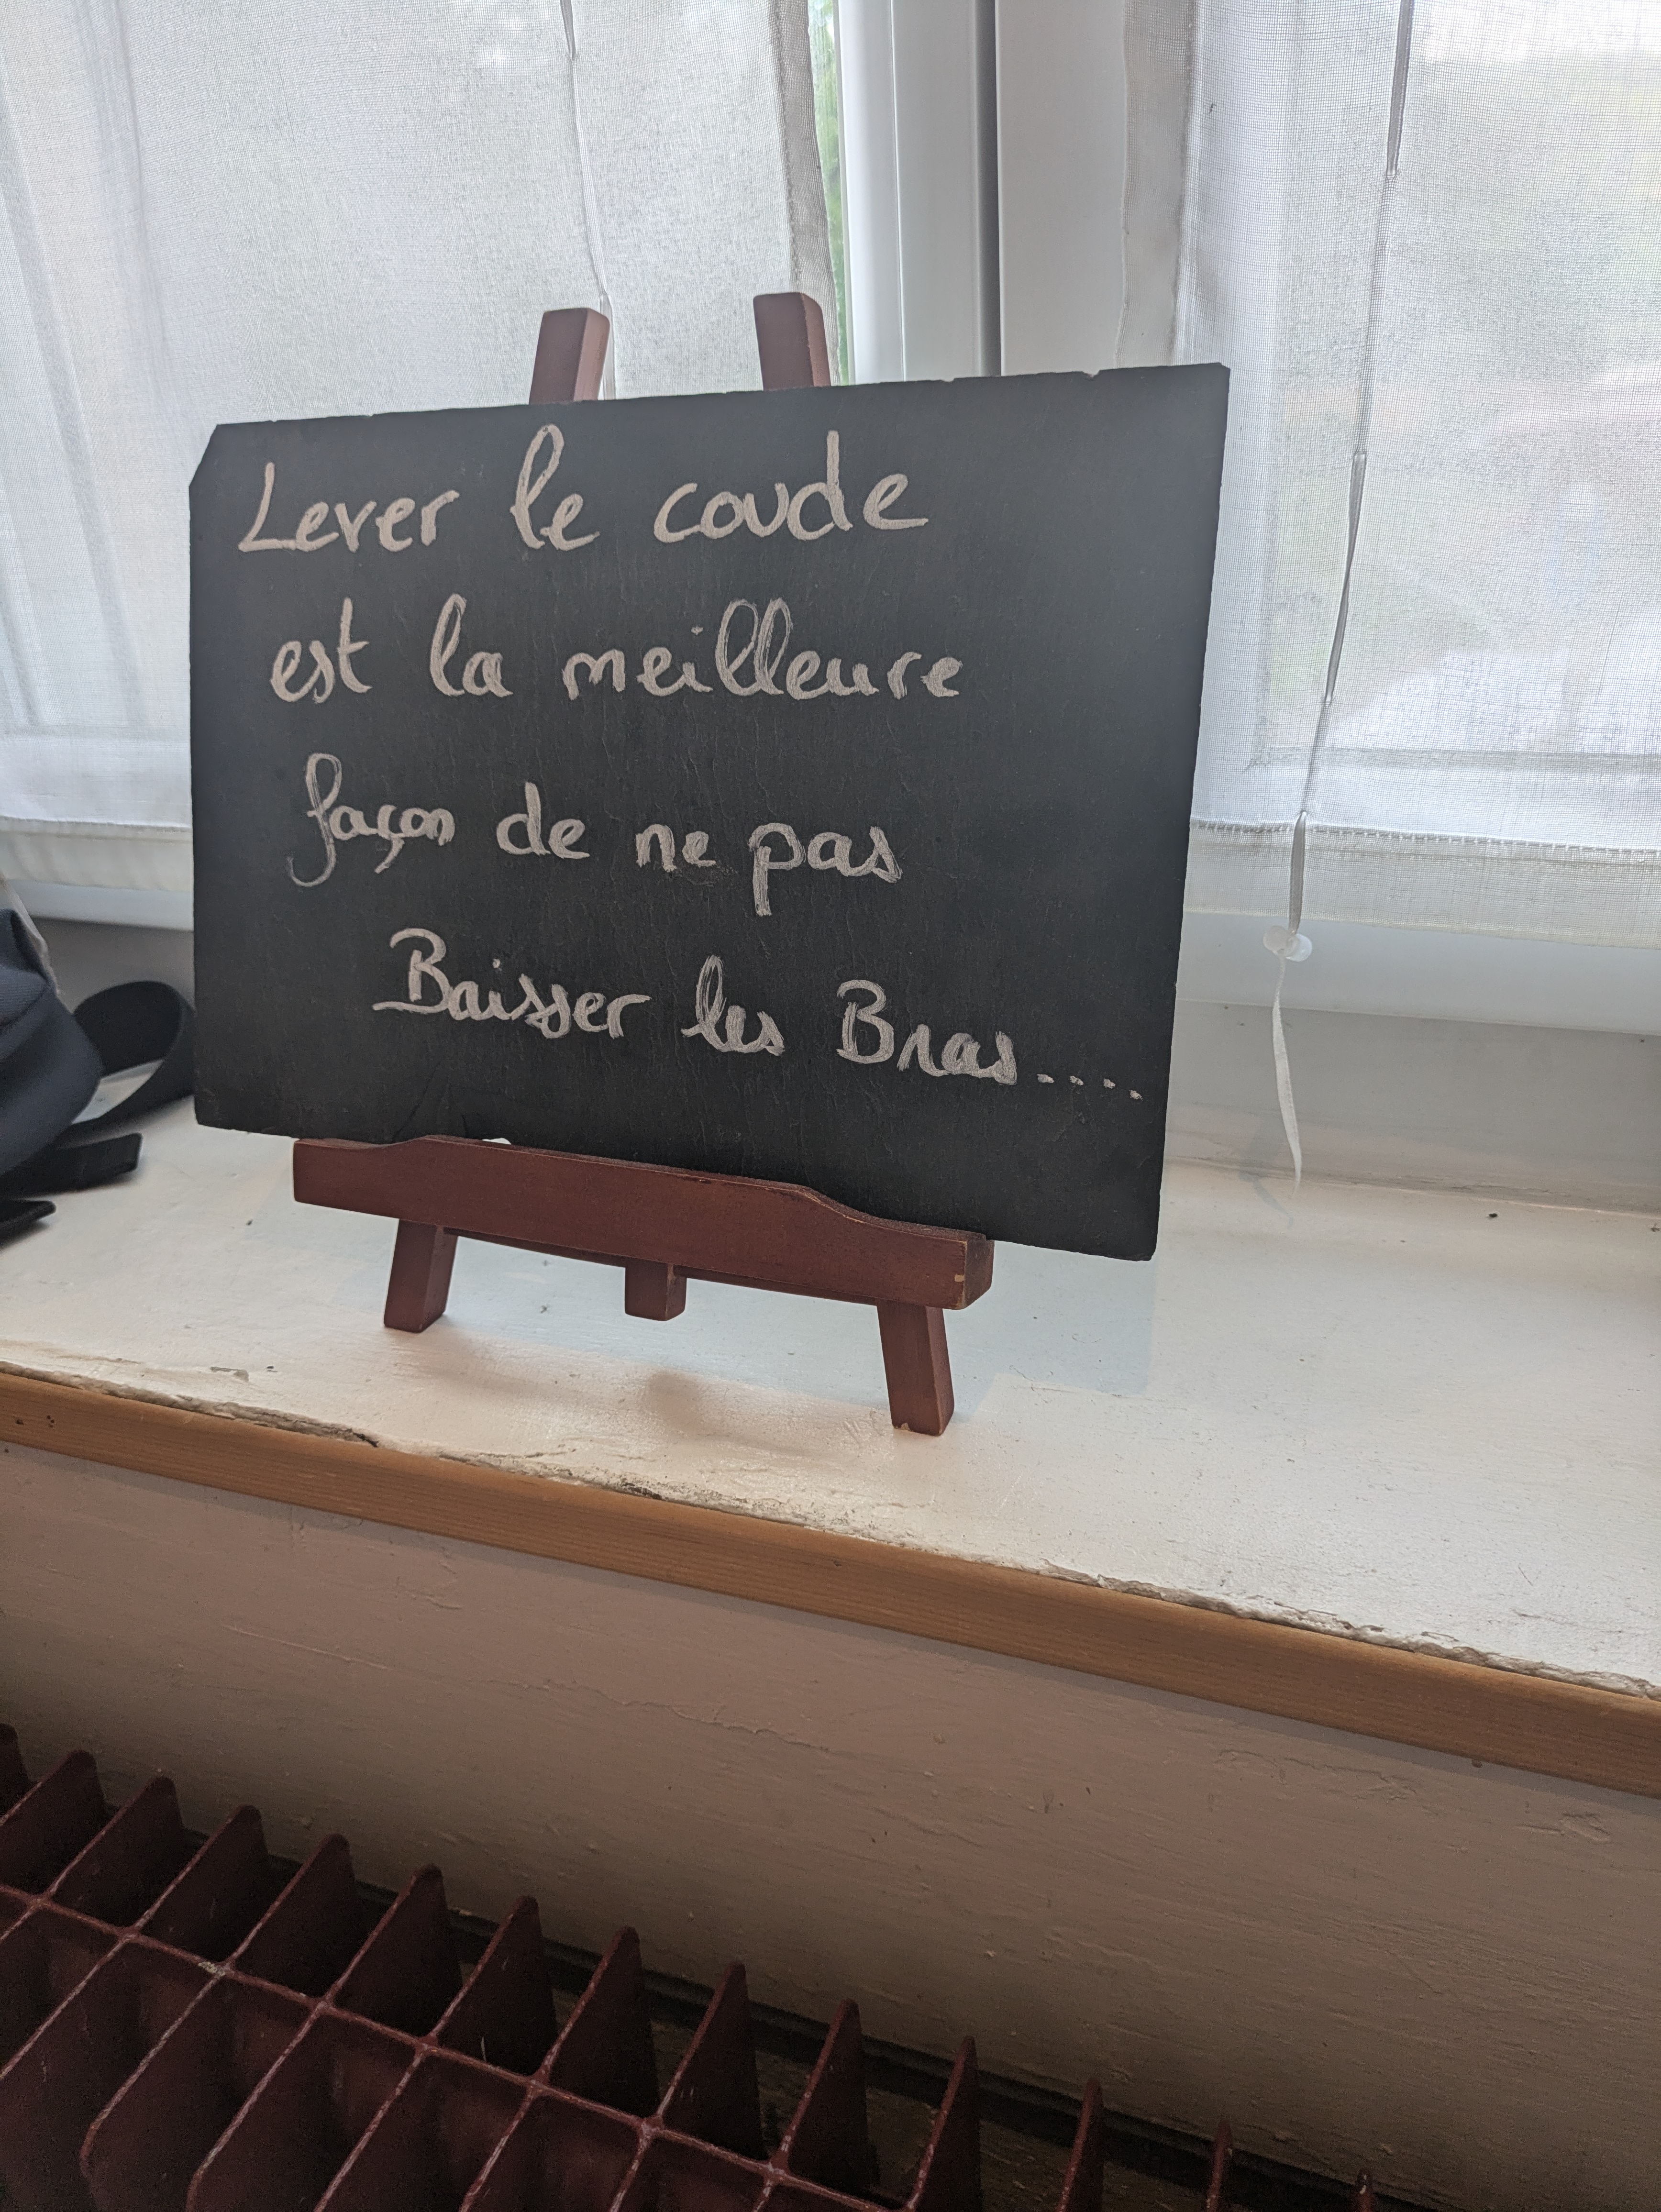 Lever le coude
est la meilleure
façon de ne pas
Baisser les Bras.....